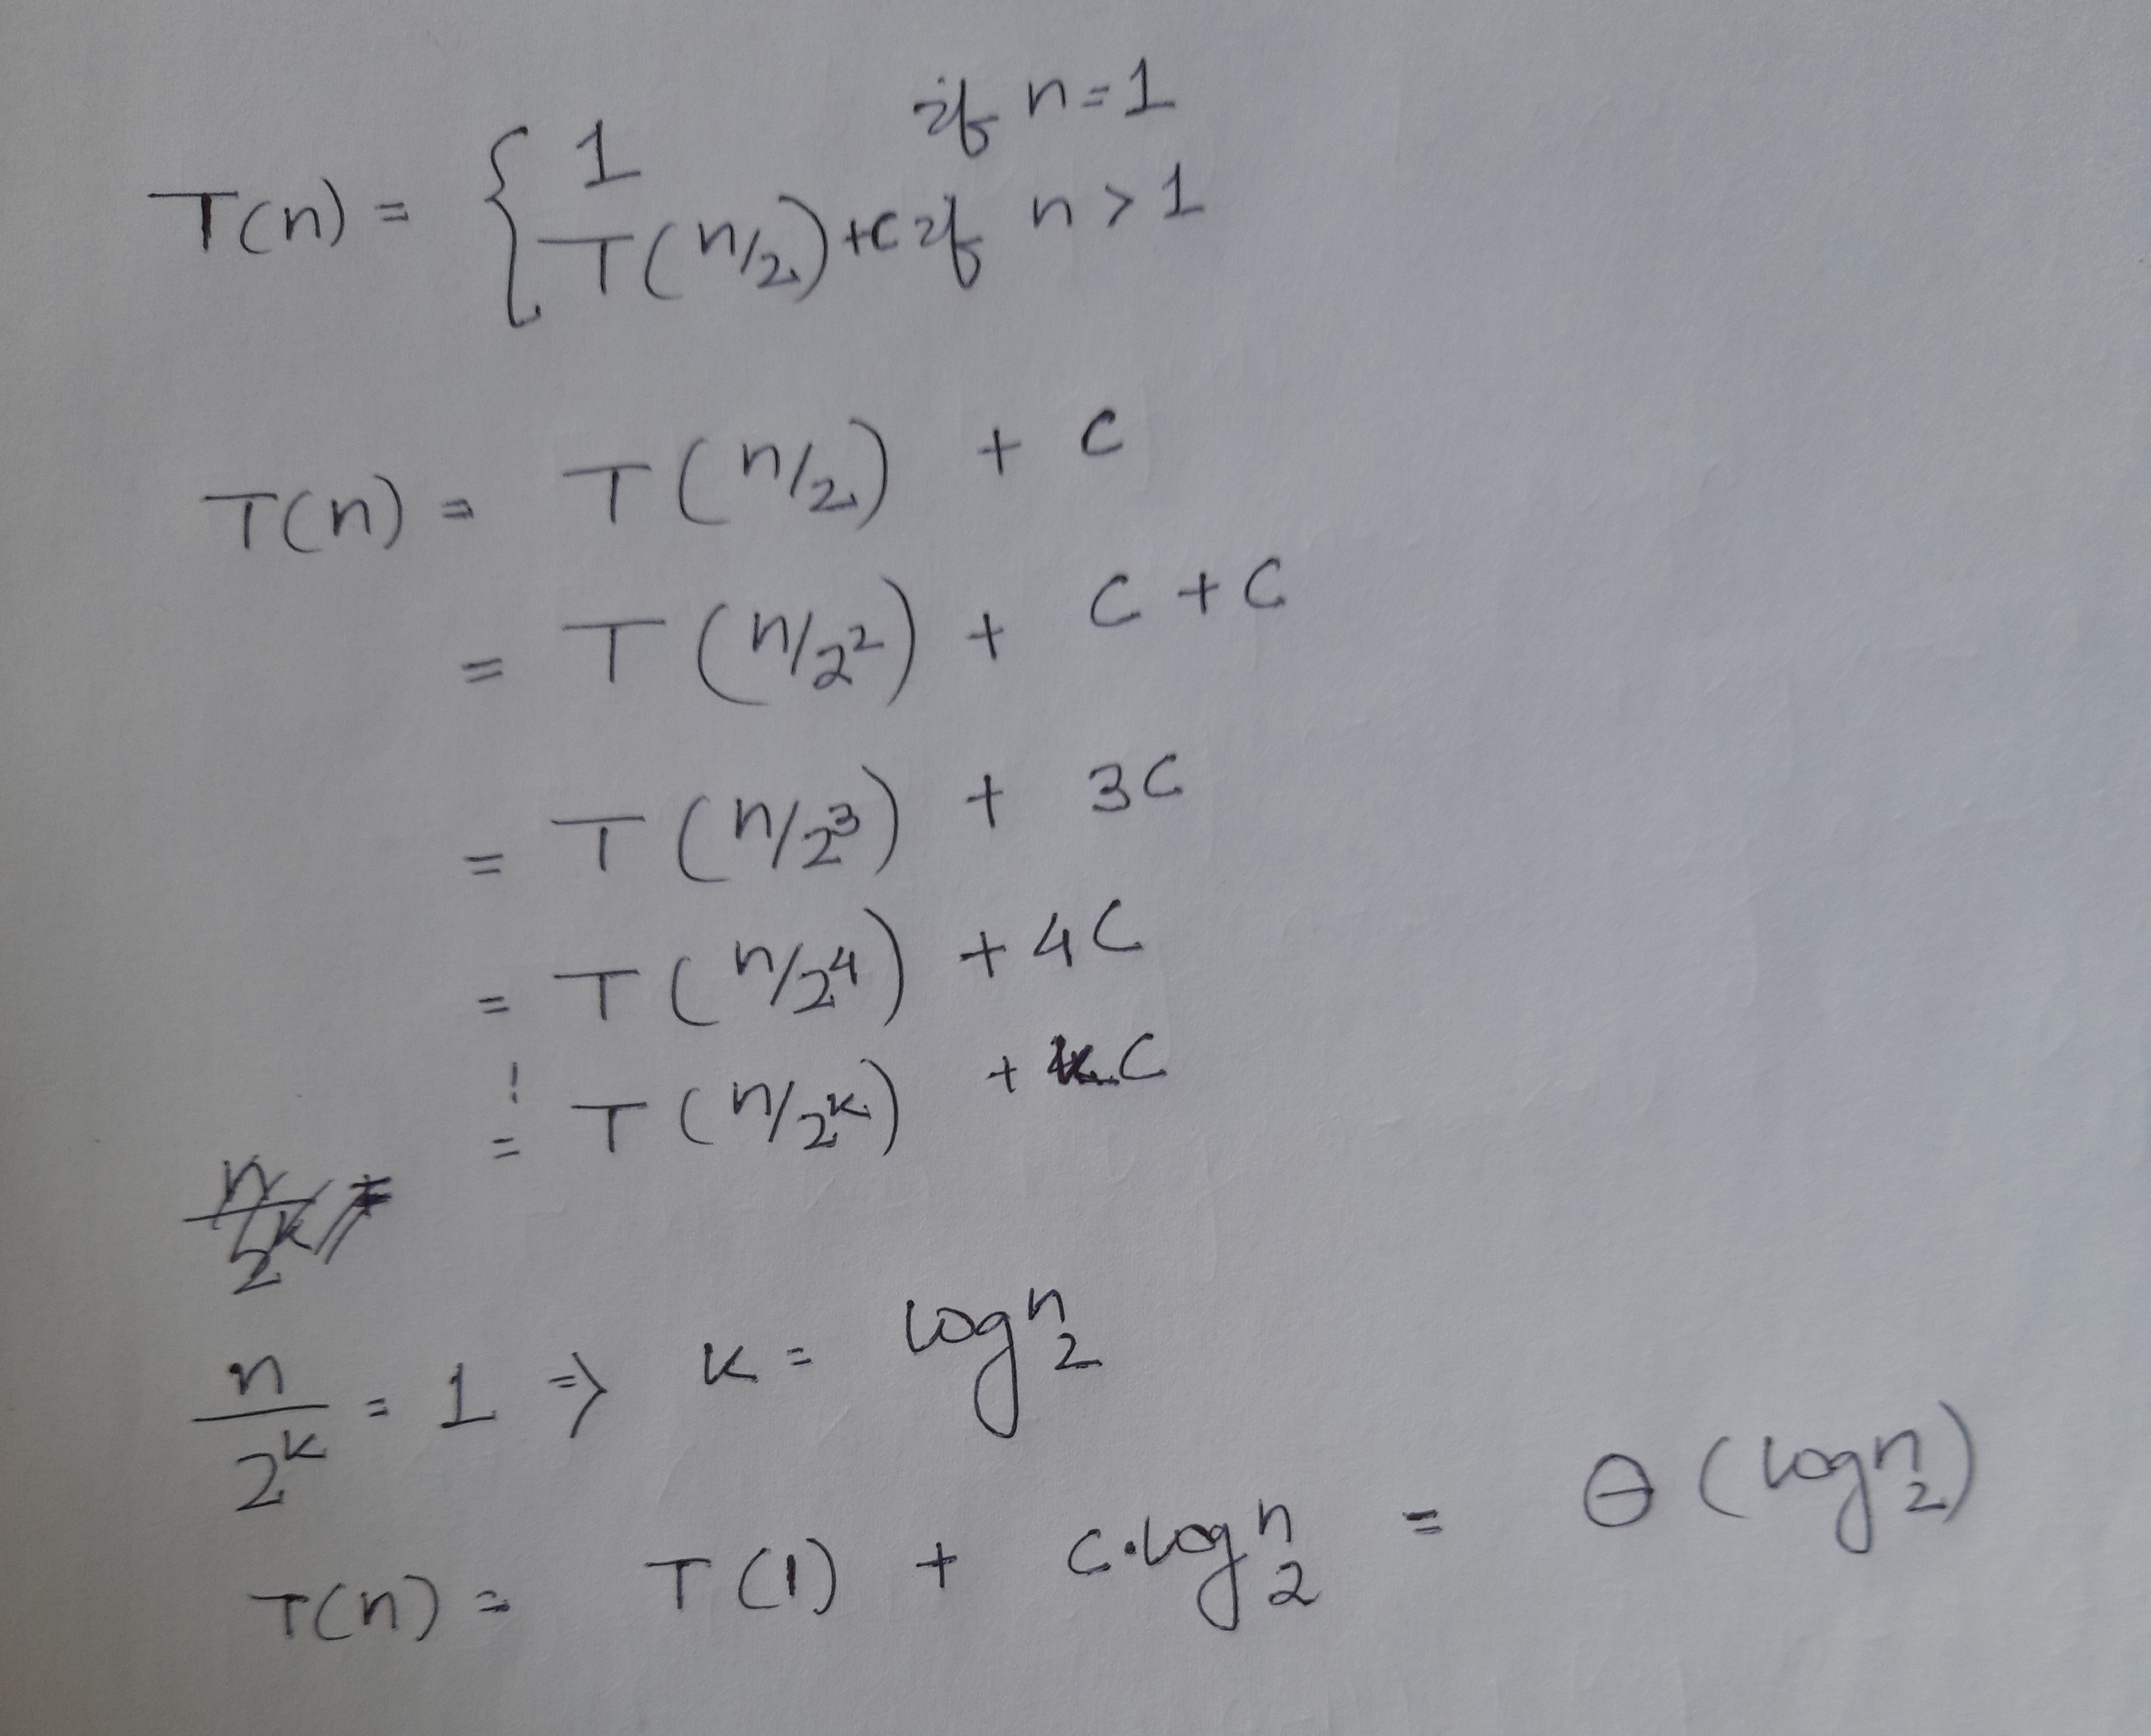 T(n) = { 1 if n=1
T(n/2)+c if n>1
T(n) = T(n/2) + c
= T(n/2²) + c + c
= T(n/2³) + 3c
= T(n/2⁴) + 4c
⋮
= T(n/2ᵏ) + kc
n/2ᵏ =
n/2ᵏ = 1 ⇒ k = log₂ⁿ
T(n) = T(1) + c·log₂ⁿ = θ(log₂ⁿ)